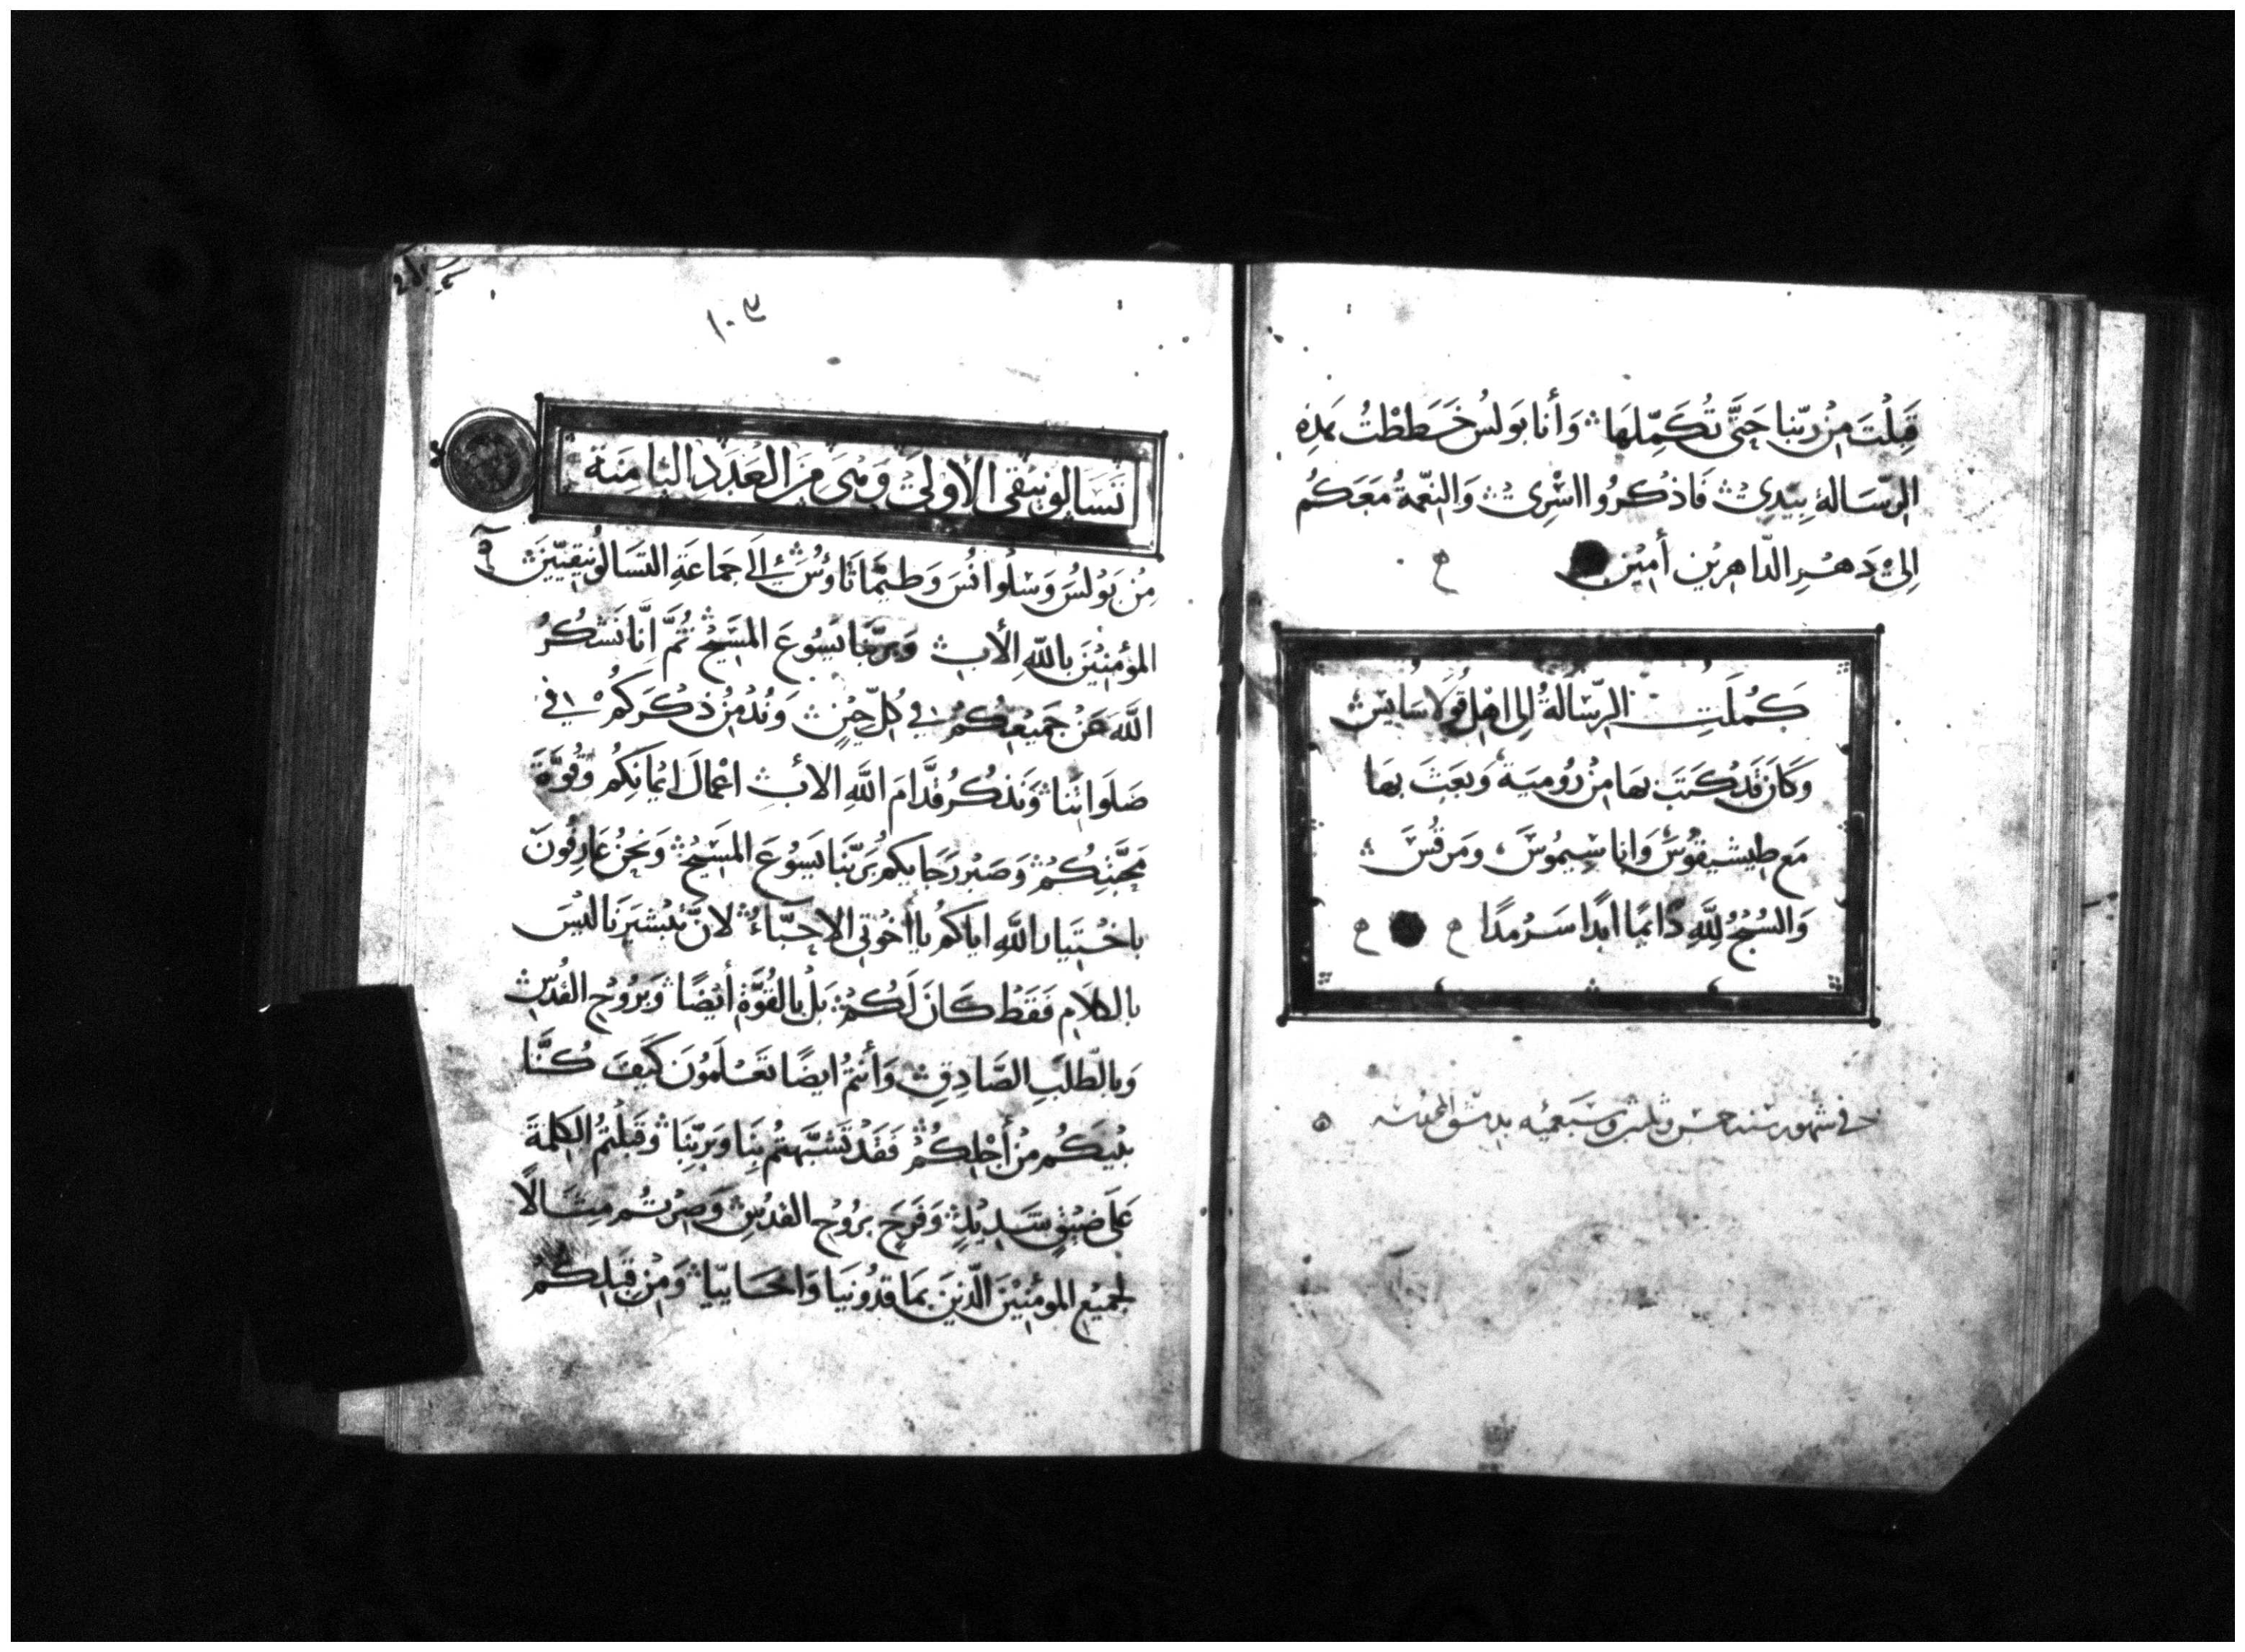 قَبِلْتَ مِنْ رَبّنا حَتَّى تُكَمِّلَهَا وَأنا بَولسُ خَطَطْتُ هَذِهِ
الرّسَالة بِيَدِي فَاذكرُوا اسْرِي وَالنِعْمَةُ مَعَكُم
اِلى دَهْرِ الدّاهِرِين أمِيْن
كَمُلَتِ الرّسَالةُ اِلى اهْلِ قُولاسَايس
وَكَانَ قَد كَتَبَ بهَا مِنْ رُومية وَبَعَثَ بهَا
مَع طيشيقوُس وَاناسِيموُسَ وَمَرقُسَ
وَالسُبْحُ لِلَّهِ دَائمًا ابَدًا سَرْمدًا
في شهور سنه خمس وثلثين وسبعمئه بدمشق
١٠٣
تَسَالونيقى الأولى وَهِيَ مِنَ العَدَدِ الثامِنة
مِنْ بَوْلسَ وَسْلُوانُسَ وَطيمَاثَاوُسَ اِلَى جَماعَةِ التسَالونيقيّينَ
المؤمِنِيْنَ باللهِ الأبِ وَبرَبّنَا يَسُوعَ المَسِيْحِ ثُمَّ اَنَّا نَشكُرُ
اللَّهَ عَنْ جَمِيْعِكُمْ في كلّ حِيْنٍ وَنُدْمِنُ ذكرَكُمْ في
صَلَوَاتِنَا وَنذكُرُ قدَّامَ اللَّهِ الأبِ اعْمالَ ايمَانكِمُ وَقوَّةَ
مَحَبَّتِكُمْ وَصَبْرَ رَجَايكم بِرَبّنَا يَسُوْعَ المَسِيْحِ وَنحنُ عَارِفُونَ
باخْتِيَارِ اللَّهِ اياكمُ يا أخوَتي الاحِبَّاءُ لانَّ تبْشيرَنا ليْسَ
بالكلَامِ فقَطْ كَانَ لَكُمْ بَلْ بالقُوَّةِ أيْضًا وَبرُوْحِ القُدُسِ
وَبالطلَبِ الصَّادِقِ وَأنتمُ ايضًا تَعْلَمُونَ كَيْفَ كُنَّا
بْينَكُم مِنْ أجْلِكُمْ فَقَدْ تَشَبَّهتمُ بِنَا وَبِرَبِّنِا وَقبلتمُ الكَلِمَةَ
عَلَى ضِيْقٍ شَدِيْدٍ وَفَرَحِ برُوْحِ القدُسِ وَصِرْتُم مِثَالًا
لجَمِيْعِ المؤمِنِيْنَ الّذيْنَ بمَاقِدُونيَا وَاخَاييّا وَمِنْ قِبَلِكُمْ